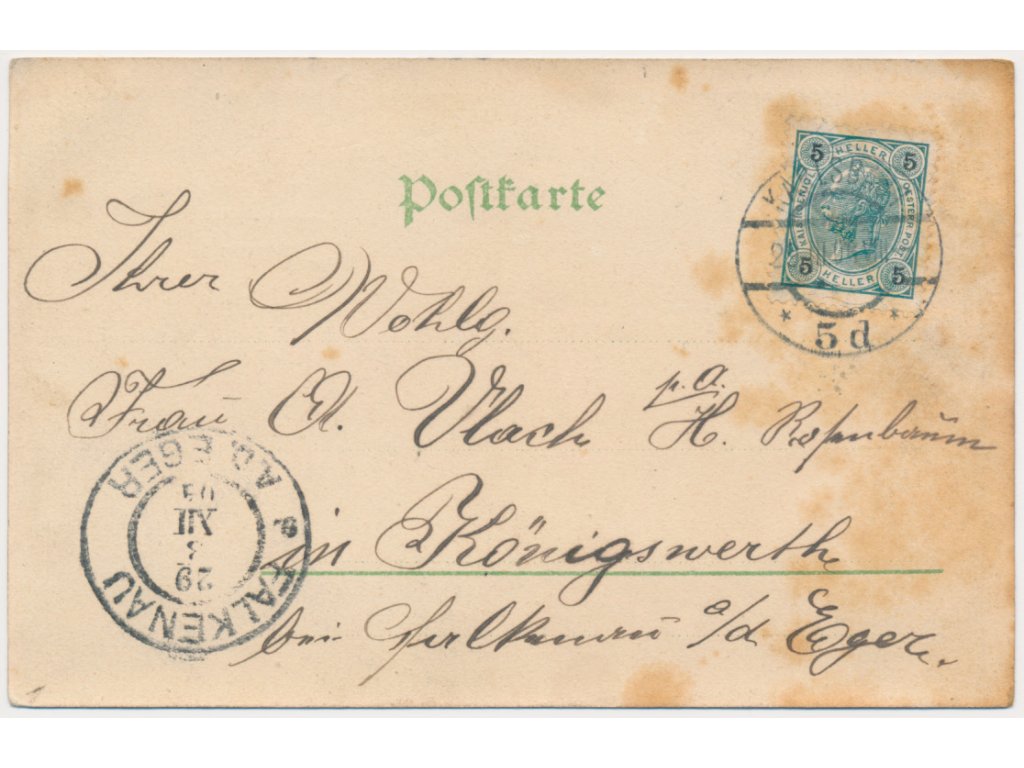 Postkarte
5 HELLER 5
KAIS. KÖNIGL. OESTERR. POST.
5 HELLER 5
* 5 d *
Ihrer
Wohlg.
Frau A. Vlach p. a. H. Rosenbaum
in Königswerth
bei Falkenau a/d Eger.
FALKENAU A.D. EGER
29
XII
05